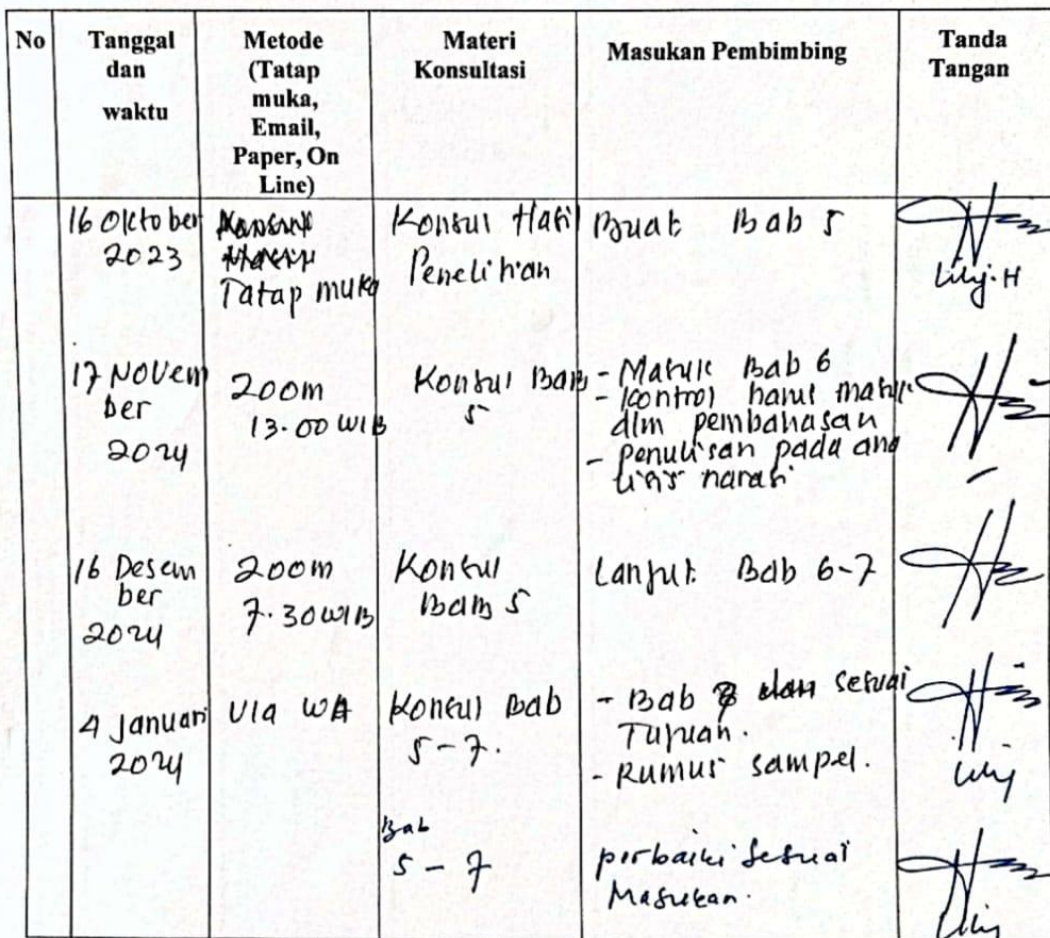 No
Tanggal
dan
waktu
Metode
(Tatap
muka,
Email,
Paper, On
Line)
Materi
Konsultasi
Masukan Pembimbing
Tanda
Tangan
16 Oktober
2023
Tatap muka
Konsul Hasil
Penelitian
Buat Bab 5
Lily.H
17 Novem
ber
2024
Zoom
13.00 WIB
Konsul Bab
5
- Masuk Bab 6
- Kontrol harus masuk
dlm pembahasan
- penulisan pada ana
lisis narasi
16 Desem
ber
2024
Zoom
7.30 WIB
Konsul
Bab 5
Lanjut Bab 6-7
4 Januari
2024
Via WA
Konsul Bab
5-7.
- Bab 7 sesuai
Tujuan.
- Rumus sampel.
Lily
Bab
5-7
perbaiki sesuai
Masukan.
Lily